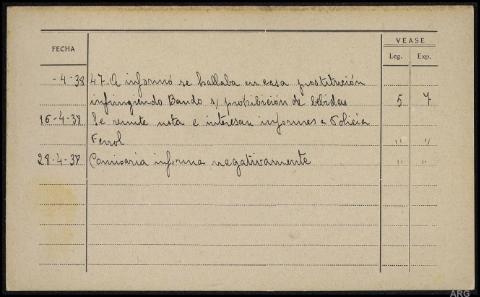 VEASE
FECHA Leg. Exp.
-4-38 47-A informó se hallaba en casa prostitución
infringiendo Bando s/ prohibición de bebidas 5 7
16-4-38 Se remite nota e interesan informes a Policía
Ferrol " "
29-4-38 Comisaria informa negativamente " "
ARG